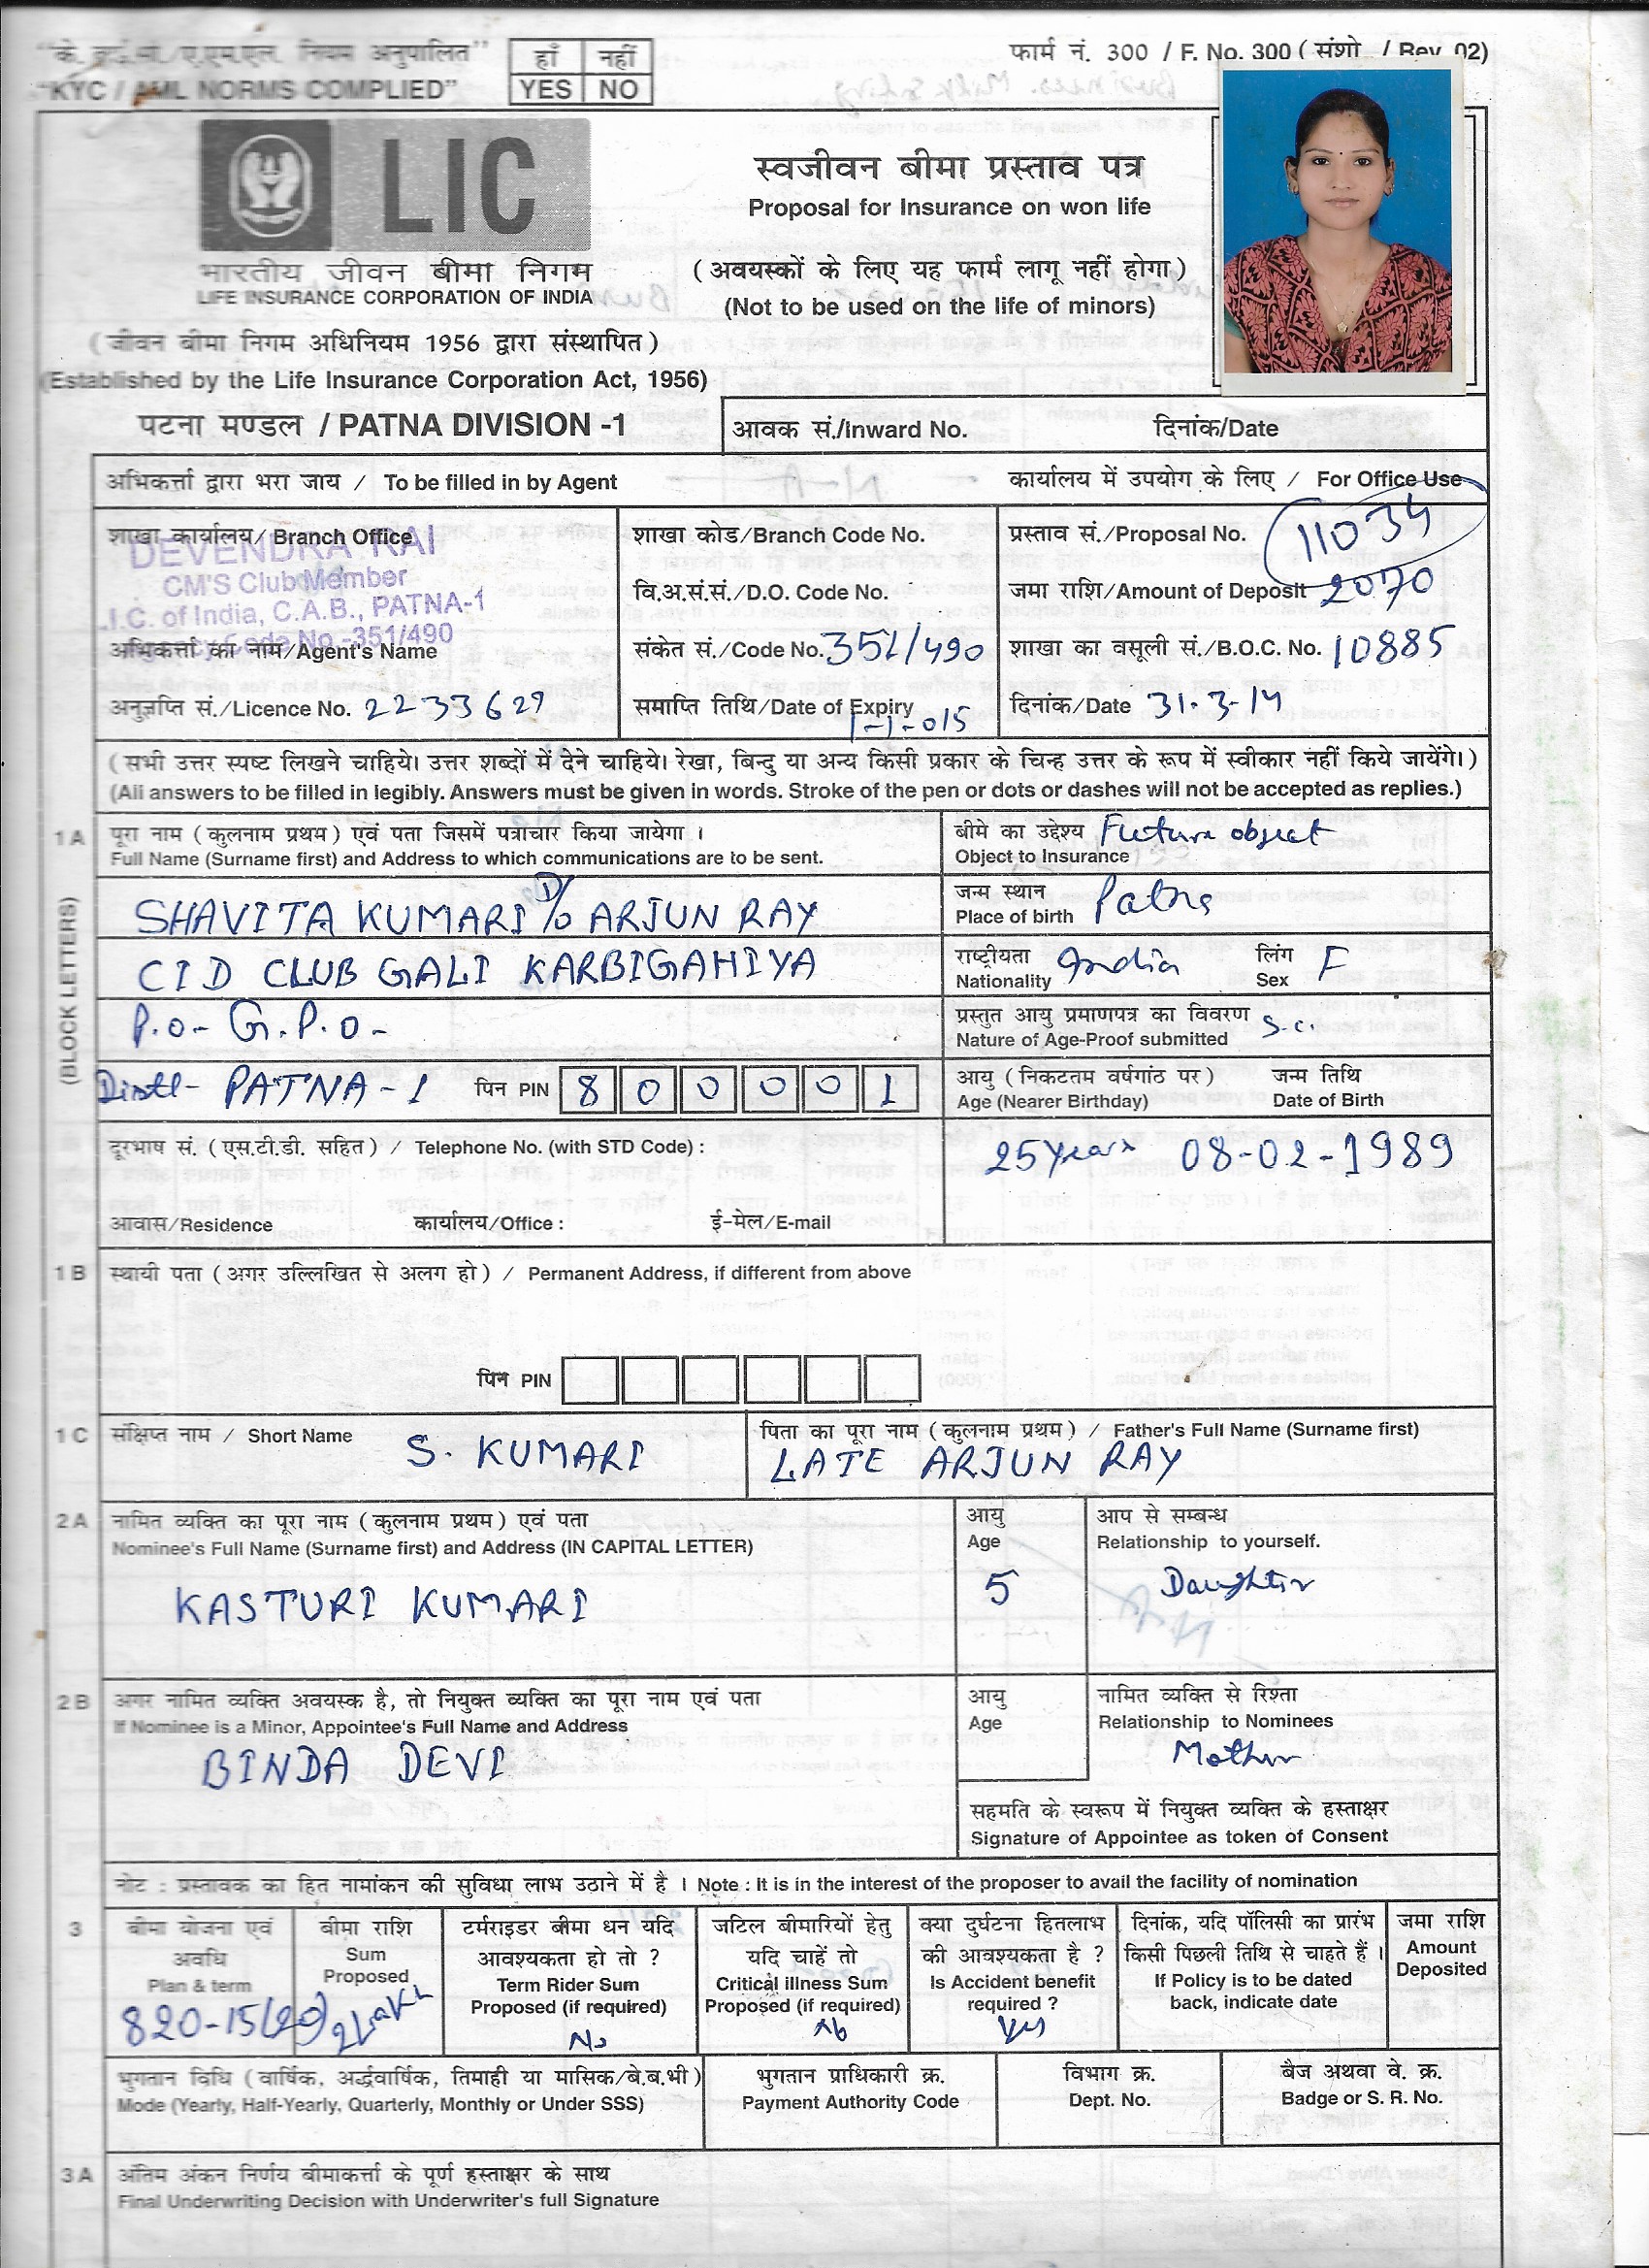 "के.वाई.सी./ए.एम.एल. नियम अनुपालित"
"KYC / AML NORMS COMPLIED"
हाँ नहीं
YES NO
फार्म नं. 300 / F. No. 300 ( संशो / Rev 02)
LIC
भारतीय जीवन बीमा निगम
LIFE INSURANCE CORPORATION OF INDIA
स्वजीवन बीमा प्रस्ताव पत्र
Proposal for Insurance on won life
( अवयस्कों के लिए यह फार्म लागू नहीं होगा )
(Not to be used on the life of minors)
( जीवन बीमा निगम अधिनियम 1956 द्वारा संस्थापित )
(Established by the Life Insurance Corporation Act, 1956)
पटना मण्डल / PATNA DIVISION -1
आवक सं./Inward No. दिनांक/Date
अभिकर्त्ता द्वारा भरा जाय / To be filled in by Agent
कार्यालय में उपयोग के लिए / For Office Use
शाखा कार्यालय/ Branch Office
DEVENDRA RAI
CM'S Club Member
L.I.C. of India, C.A.B., PATNA-1
Code No.-351/490
अभिकर्त्ता का नाम/Agent's Name
अनुज्ञप्ति सं./Licence No. 2233629
शाखा कोड/Branch Code No.
वि.अ.सं.सं./D.O. Code No.
संकेत सं./Code No. 351/490
समाप्ति तिथि/Date of Expiry
1-1-015
प्रस्ताव सं./Proposal No. 11034
जमा राशि/Amount of Deposit 2070
शाखा का वसूली सं./B.O.C. No. 10885
दिनांक/Date 31.3.14
( सभी उत्तर स्पष्ट लिखने चाहिये। उत्तर शब्दों में देने चाहिये। रेखा, बिन्दु या अन्य किसी प्रकार के चिन्ह उत्तर के रूप में स्वीकार नहीं किये जायेंगे। )
(All answers to be filled in legibly. Answers must be given in words. Stroke of the pen or dots or dashes will not be accepted as replies.)
1 A पूरा नाम ( कुलनाम प्रथम ) एवं पता जिसमें पत्राचार किया जायेगा ।
Full Name (Surname first) and Address to which communications are to be sent.
(BLOCK LETTERS)
SHAVITA KUMARI D/o ARJUN RAY
CID CLUB GALI KARBIGAHIYA
P.O- G.P.O-
Distt- PATNA-1 पिन PIN 8 0 0 0 0 1
बीमे का उद्देश्य Future object
Object to Insurance
जन्म स्थान
Place of birth Patna
राष्ट्रीयता लिंग
Nationality India Sex F
प्रस्तुत आयु प्रमाणपत्र का विवरण S.C.
Nature of Age-Proof submitted
आयु ( निकटतम वर्षगांठ पर ) जन्म तिथि
Age (Nearer Birthday) Date of Birth
25 Years 08-02-1989
दूरभाष सं. ( एस.टी.डी. सहित ) / Telephone No. (with STD Code) :
आवास/Residence कार्यालय/Office : ई-मेल/E-mail
1 B स्थायी पता ( अगर उल्लिखित से अलग हो ) / Permanent Address, if different from above
पिन PIN
1 C संक्षिप्त नाम / Short Name S. KUMARI
पिता का पूरा नाम ( कुलनाम प्रथम ) / Father's Full Name (Surname first)
LATE ARJUN RAY
2 A नामित व्यक्ति का पूरा नाम ( कुलनाम प्रथम ) एवं पता
Nominee's Full Name (Surname first) and Address (IN CAPITAL LETTER)
KASTURI KUMARI
आयु
Age
5
आप से सम्बन्ध
Relationship to yourself.
Daughter
2 B अगर नामित व्यक्ति अवयस्क है, तो नियुक्त व्यक्ति का पूरा नाम एवं पता
If Nominee is a Minor, Appointee's Full Name and Address
BINDA DEVI
आयु
Age
नामित व्यक्ति से रिश्ता
Relationship to Nominees
Mother
सहमति के स्वरूप में नियुक्त व्यक्ति के हस्ताक्षर
Signature of Appointee as token of Consent
नोट : प्रस्तावक का हित नामांकन की सुविधा लाभ उठाने में है । Note : It is in the interest of the proposer to avail the facility of nomination
3 बीमा योजना एवं
अवधि
Plan & term
820-15(20)
बीमा राशि
Sum
Proposed
2 Lakh
टर्मराइडर बीमा धन यदि
आवश्यकता हो तो ?
Term Rider Sum
Proposed (if required)
No
जटिल बीमारियों हेतु
यदि चाहें तो
Critical illness Sum
Proposed (if required)
No
क्या दुर्घटना हितलाभ
की आवश्यकता है ?
Is Accident benefit
required ?
Yes
दिनांक, यदि पॉलिसी का प्रारंभ
किसी पिछली तिथि से चाहते हैं ।
If Policy is to be dated
back, indicate date
जमा राशि
Amount
Deposited
भुगतान विधि ( वार्षिक, अर्द्धवार्षिक, तिमाही या मासिक/बे.ब.भी )
Mode (Yearly, Half-Yearly, Quarterly, Monthly or Under SSS)
भुगतान प्राधिकारी क्र.
Payment Authority Code
विभाग क्र.
Dept. No.
बैज अथवा वे. क्र.
Badge or S. R. No.
3 A अंतिम अंकन निर्णय बीमाकर्त्ता के पूर्ण हस्ताक्षर के साथ
Final Underwriting Decision with Underwriter's full Signature